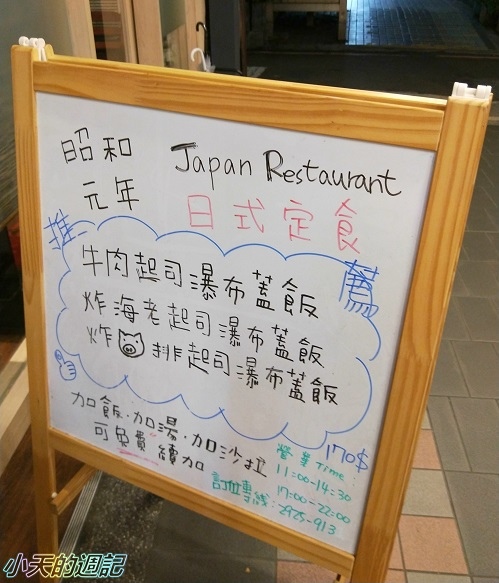 昭和
元年
Japan Restaurant
日式定食
推薦
牛肉起司瀑布蓋飯
炸海老起司瀑布蓋飯
炸排起司瀑布蓋飯
170$
加飯·加湯·加沙拉
可免費續加
營業Time:
11:00-14:30
17:00-22:00
訂位專線:2925-913
小天的週記